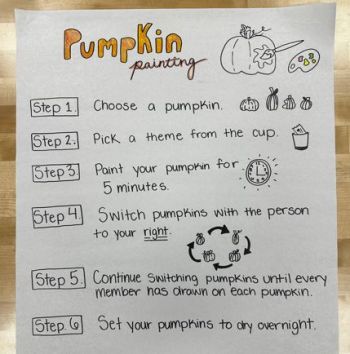 Pumpkin
painting
Step 1. Choose a pumpkin.
Step 2. Pick a theme from the cup.
Step 3. Paint your pumpkin for
5 minutes.
Step 4. Switch pumpkins with the person
to your right.
Step 5. Continue switching pumpkins until every
member has drawn on each pumpkin.
Step. 6 Set your pumpkins to dry overnight.